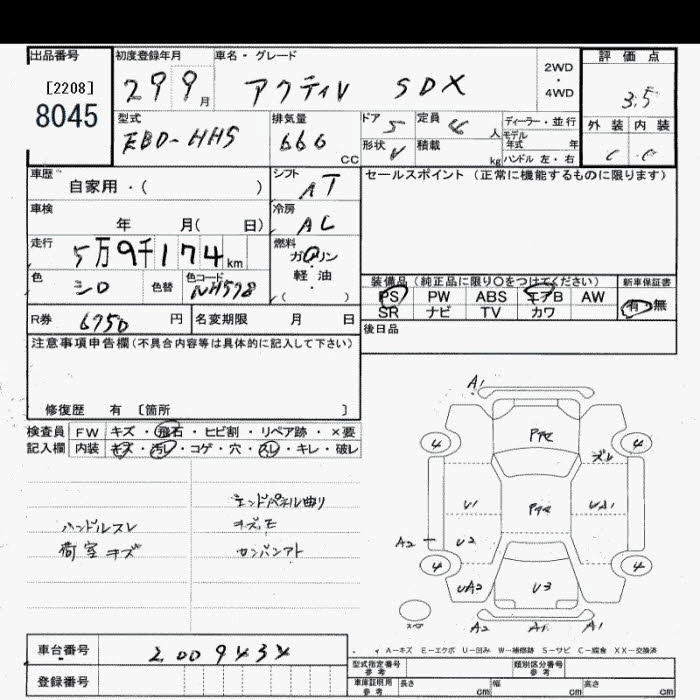 出品番号 初度登録年月 車名・グレード 評価点
[2208] 8045 29 9月 アクティV SDX 2WD・4WD 3.5
外装 内装
C C
型式 排気量 ドア 定員 ディーラー・並行
EBD-HH5 660 CC 5 4人 モデル年式 年
形状 V 積載 kg ハンドル 左・右
車歴 シフト セールスポイント (正常に機能するものに限ります)
自家用・( ) AT
車検 冷房
年 月( 日) AC
走行 燃料
5万9千174km ガソリン
色 色替 色コード 軽・油
シロ NH578 ( )
装備品 (純正品に限り○をつけてください) 新車保証書
PS PW ABS エアB AW 有・無
SR ナビ TV カワ
R券 6750円 名変期限 月 日 後日品
注意事項申告欄(不具合内容等は具体的に記入して下さい)
修復歴 有 [箇所 ]
検査員 FW キズ・飛石・ヒビ割・リペア跡・×要
記入欄 内装 キズ・汚レ・コゲ・穴・スレ・キレ・破レ
エンドパネル曲り
ハンドルスレ キズモ
荷室キズ カンバンアト
A1
4 4
ズレ
U1
A2 U2
4 4
UA2 U3
スペア A2 A1 A1
A-キズ E-エクボ U-凹み W-補修跡 S-サビ C-腐食 XX-交換済
車台番号 2009434
登録番号
型式指定番号 参考 類別区分番号 参考
車庫証明用 参考 長さ cm 幅 cm 高さ cm